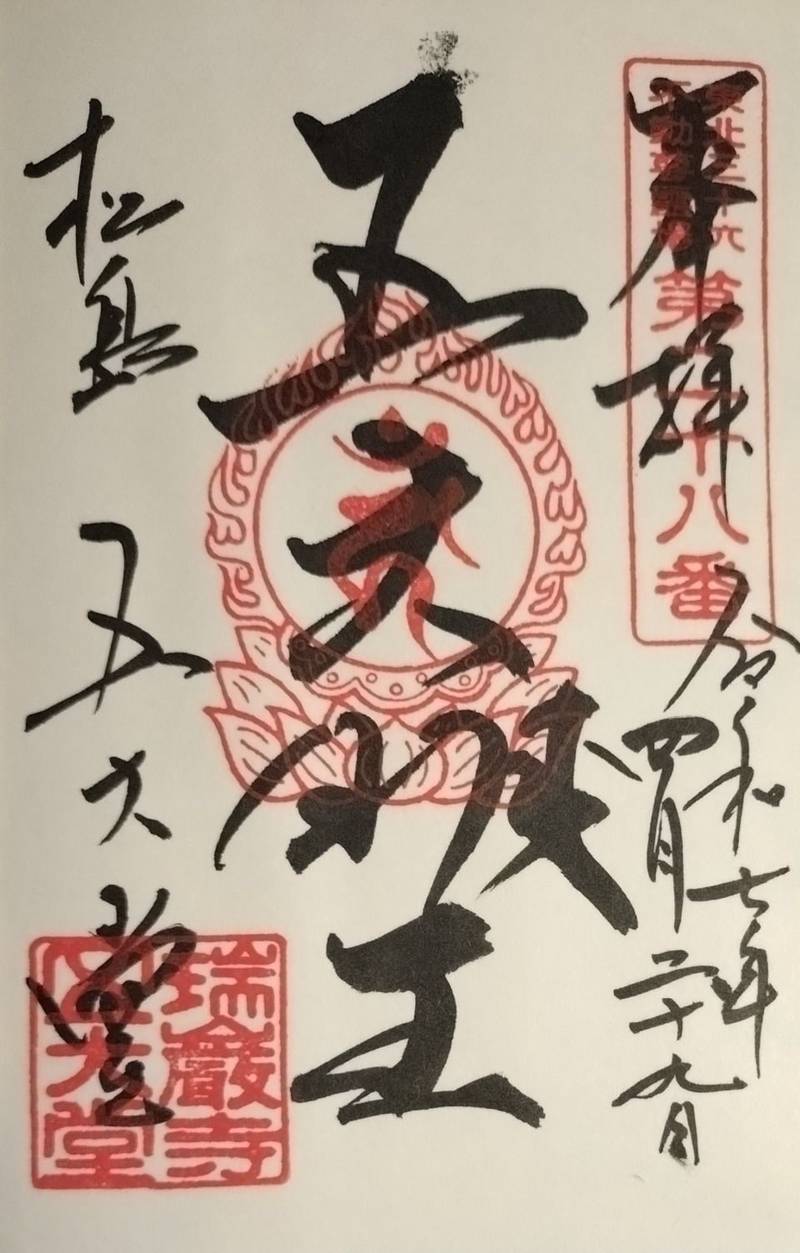 東北三十六
不動尊霊場
第二十八番
奉拝
令和七年
四月二十九日
五大明王
松島 五大堂
瑞巌寺
五大堂